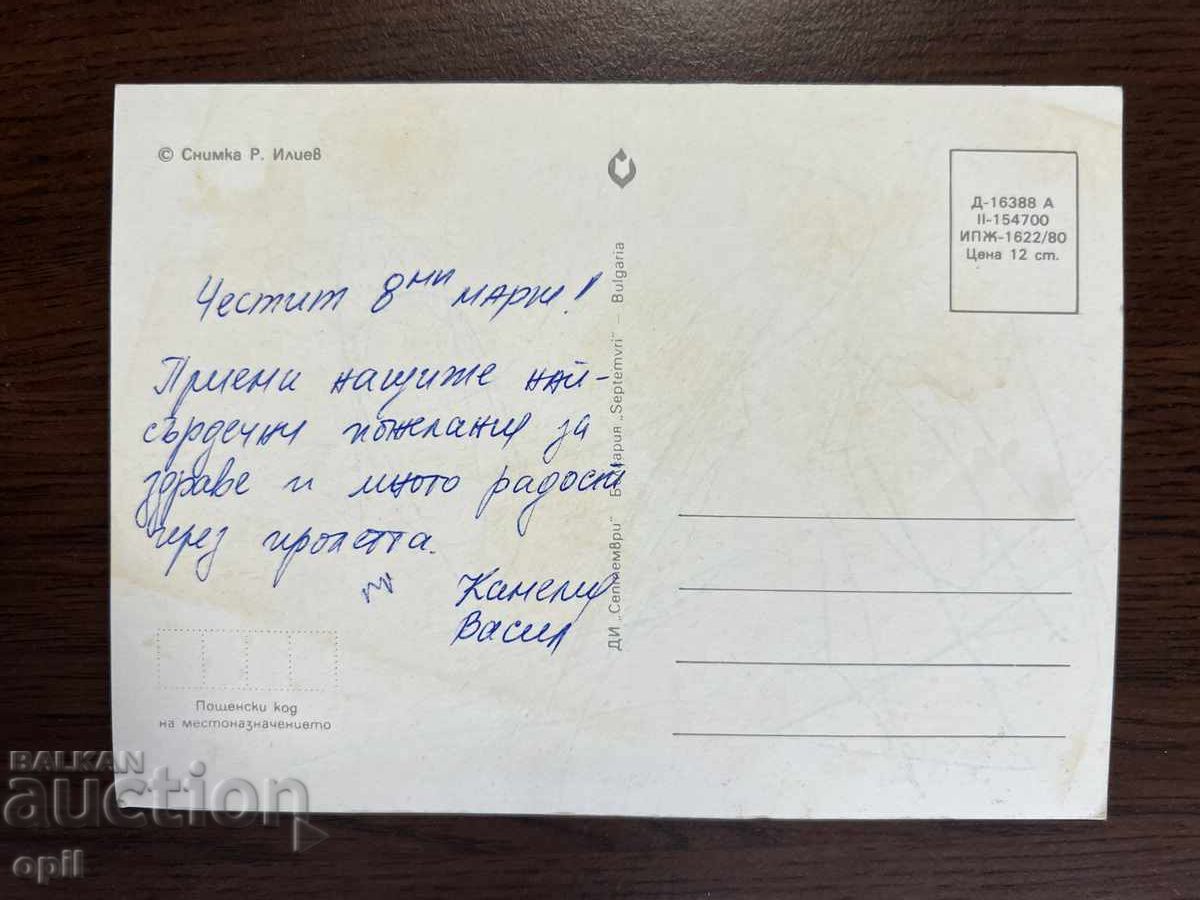 © Снимка Р. Илиев
Д-16388 А
II-154700
ИПЖ-1622/80
Цена 12 ст.
Честит 8ми март!
Приеми нашите най-
сърдечни пожелания за
здраве и много радости
през пролетта.
Канелия
Васил
ДИ „Септември“ България „Septemvri“ – Bulgaria
Пощенски код
на местоназначението
BALKAN
auction
opil